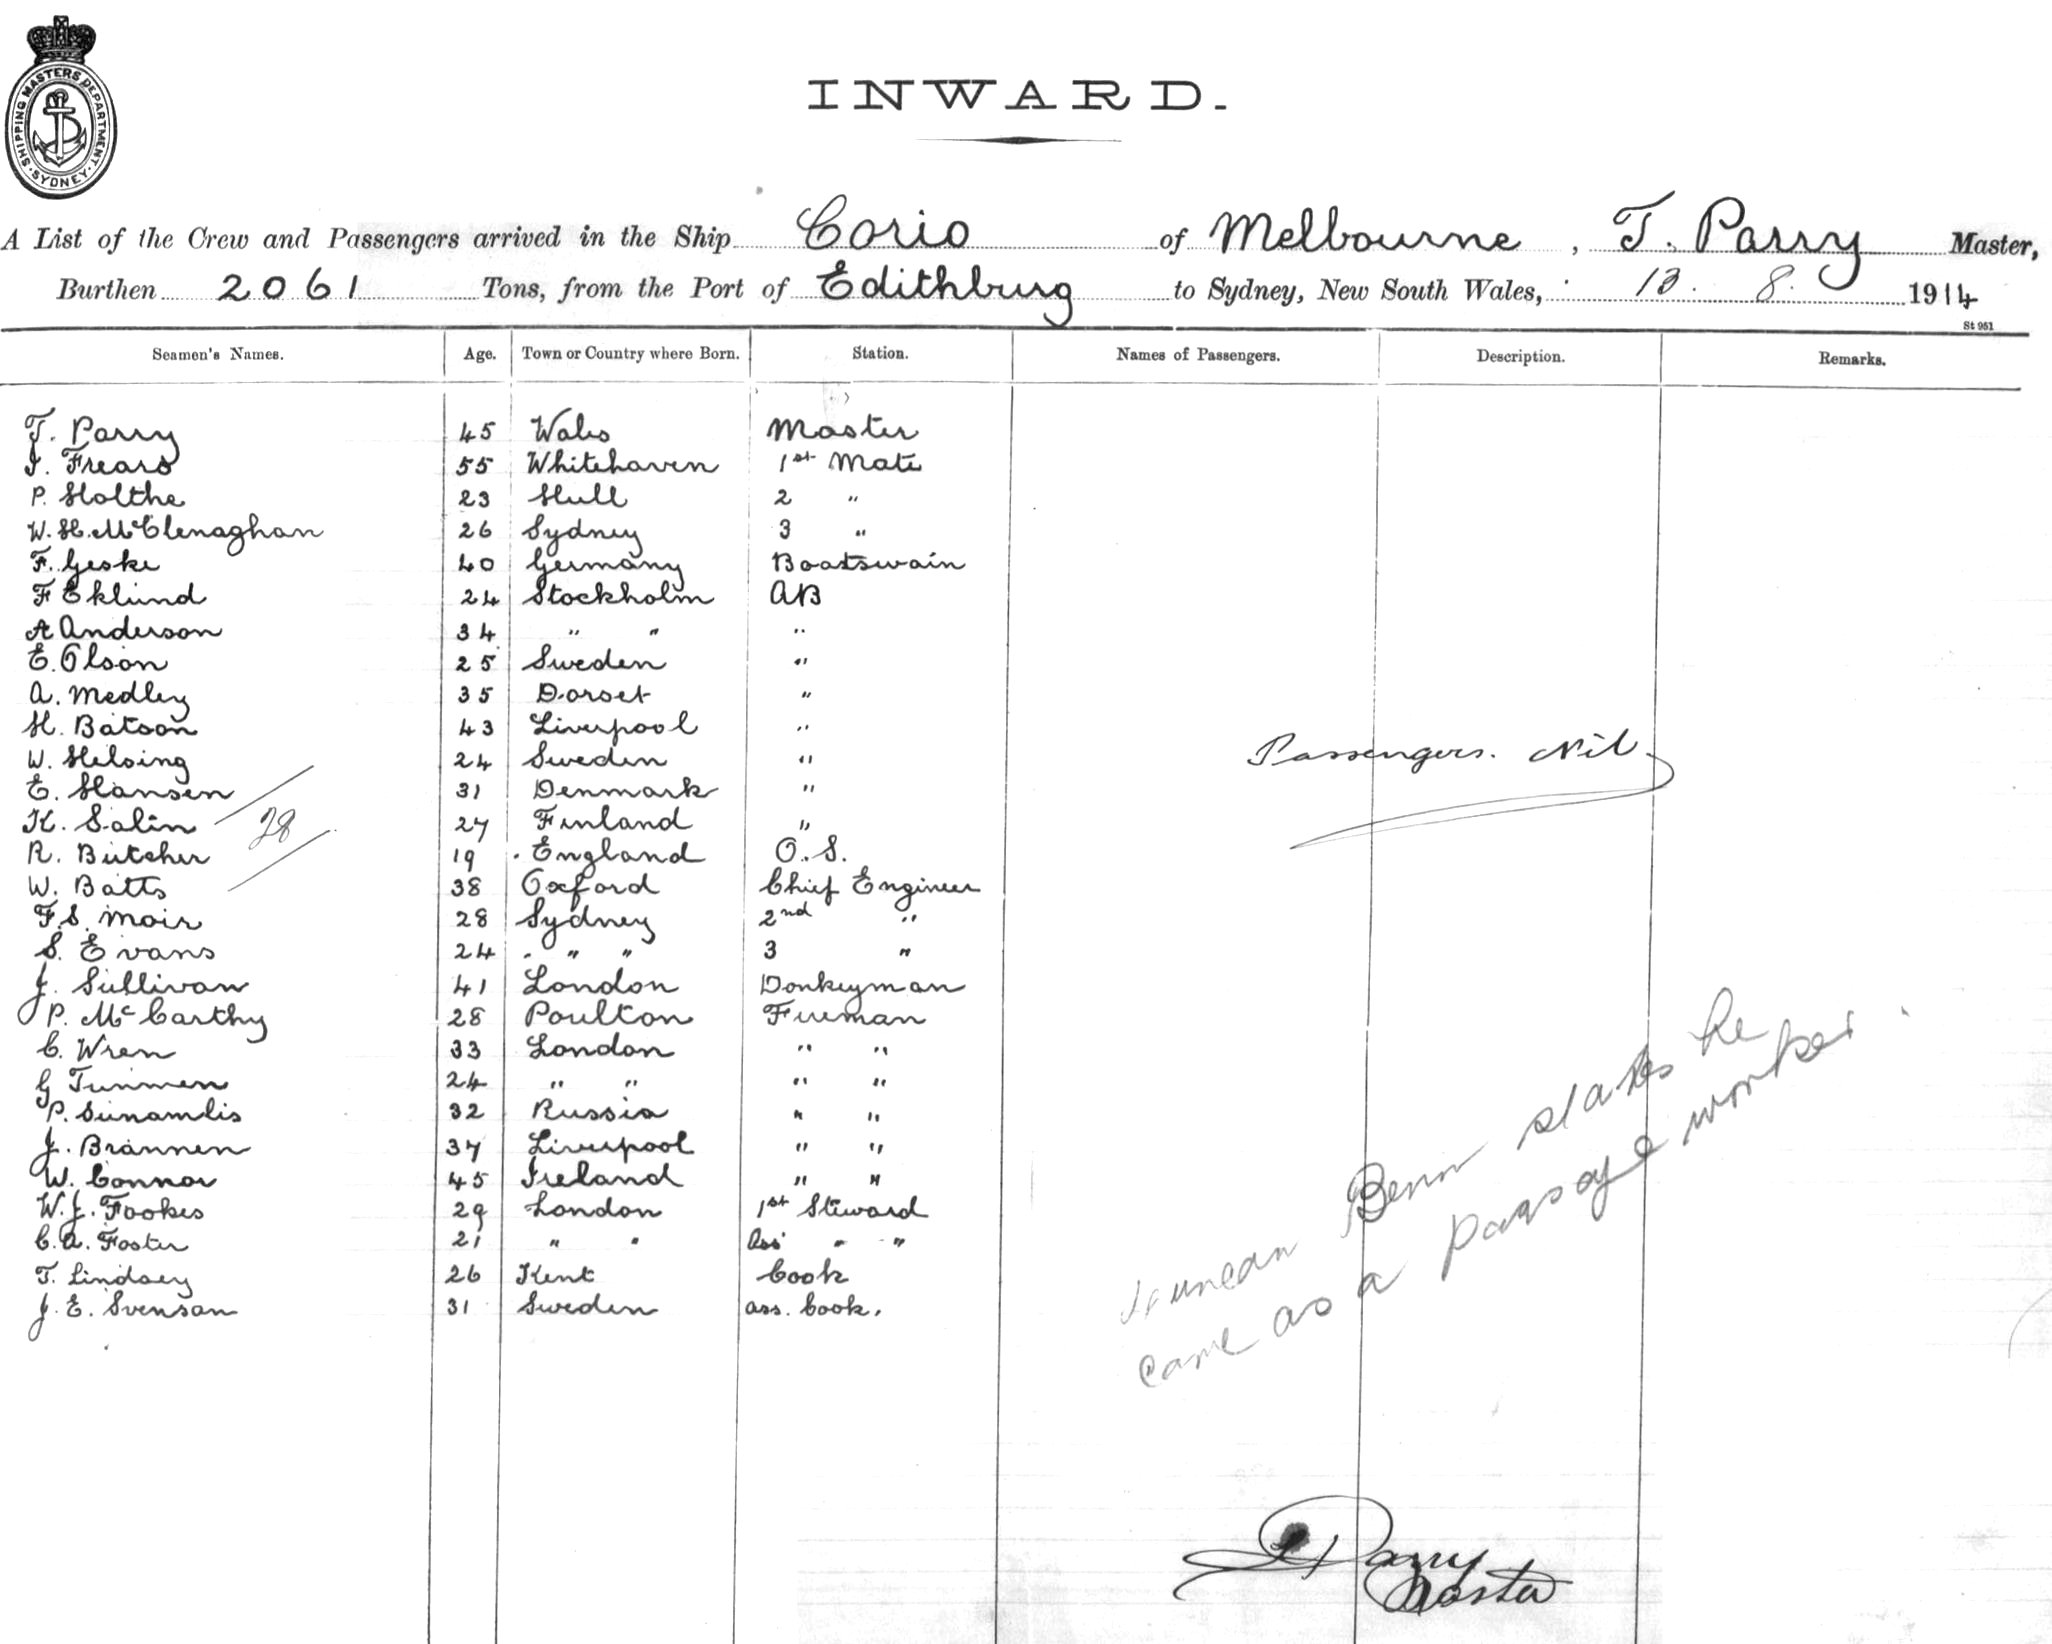 SHIPPING MASTERS DEPARTMENT · SYDNEY ·
INWARD.
A List of the Crew and Passengers arrived in the Ship Corio of Melbourne, T. Parry Master,
Burthen 2061 Tons, from the Port of Edithburg to Sydney, New South Wales, 13. 8. 1914
St 951
Seamen's Names. Age. Town or Country where Born. Station. Names of Passengers. Description. Remarks.
T. Parry 45 Wales Master
J. Frears 55 Whitehaven 1st Mate
P. Holthe 23 Hull 2 "
W. H. McClenaghan 26 Sydney 3 "
F. Geske 40 Germany Boatswain
F Eklund 24 Stockholm AB
A Anderson 34 " " "
E. Olson 25 Sweden "
A. Medley 35 Dorset "
H. Batson 43 Liverpool "
W. Helsing 24 Sweden " Passengers. Nil
E. Hansen 31 Denmark "
K. Salin 27 Finland "
28
R. Butcher 19 England O.S.
W. Batts 38 Oxford Chief Engineer
F.S. Moir 28 Sydney 2nd "
S. Evans 24 " " 3 "
J. Sullivan 41 London Donkeyman
P. McCarthy 28 Poulton Fireman
C. Wren 33 London " "
G Tunmen 24 " " " "
P. Sunamlis 32 Russia " "
J. Brannen 37 Liverpool " "
W. Connor 45 Ireland " "
W. J. Fookes 29 London 1st Steward
C. A. Foster 21 " " Ass " "
T. Lindsey 26 Kent Cook
J. E. Svenson 31 Sweden ass. Cook.
Duncan Benn states he
came as a passage worker.
T Parry
Master